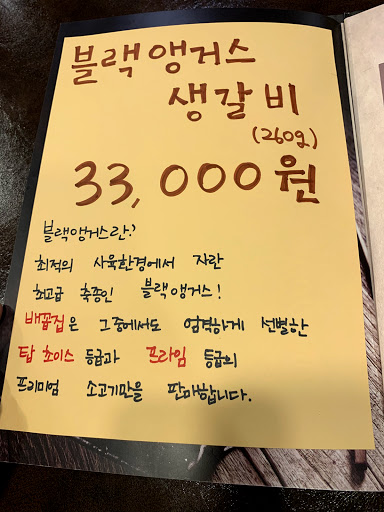 블랙앵거스
생갈비
(260g)
33,000원
블랙앵거스란?
최적의 사육환경에서 자란
최고급 축종인 블랙앵거스!
배꼽집은 그중에서도 엄격하게 선별한
탑 초이스 등급과 프라임 등급의
프리미엄 소고기만을 판매합니다.